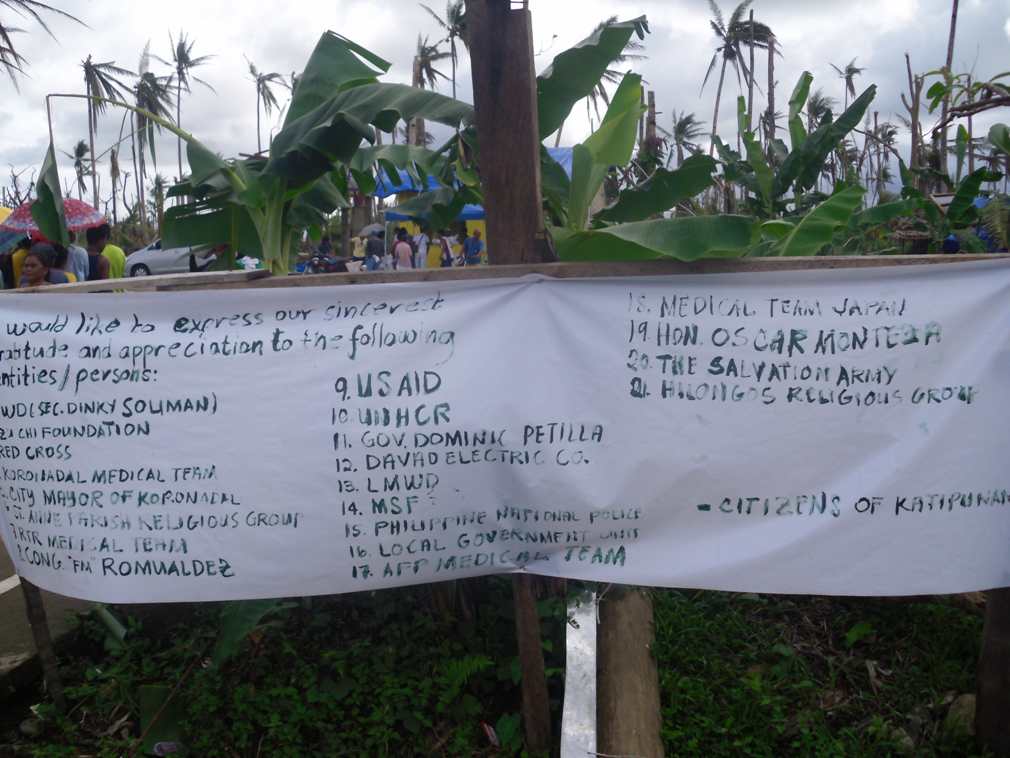 would like to express our sincerest
ratitude and appreciation to the following
entities/persons:
WD (SEC. DINKY SOLIMAN)
CHI FOUNDATION
RED CROSS
KORONADAL MEDICAL TEAM
CITY MAYOR OF KORONADAL
ST. ANNE PARISH RELIGIOUS GROUP
RTR MEDICAL TEAM
CONG. "FM" ROMUALDEZ
9. USAID
10. UNHCR
11. GOV. DOMINIC PETILLA
12. DAVAO ELECTRIC CO.
13. LMWD
14. MSF
15. PHILIPPINE NATIONAL POLICE
16. LOCAL GOVERNMENT UNIT
17. AFP MEDICAL TEAM
18. MEDICAL TEAM JAPAN
19. HON. OSCAR MONTEZA
20. THE SALVATION ARMY
21. HILONGOS RELIGIOUS GROUP
- CITIZENS OF KATIPUNAN